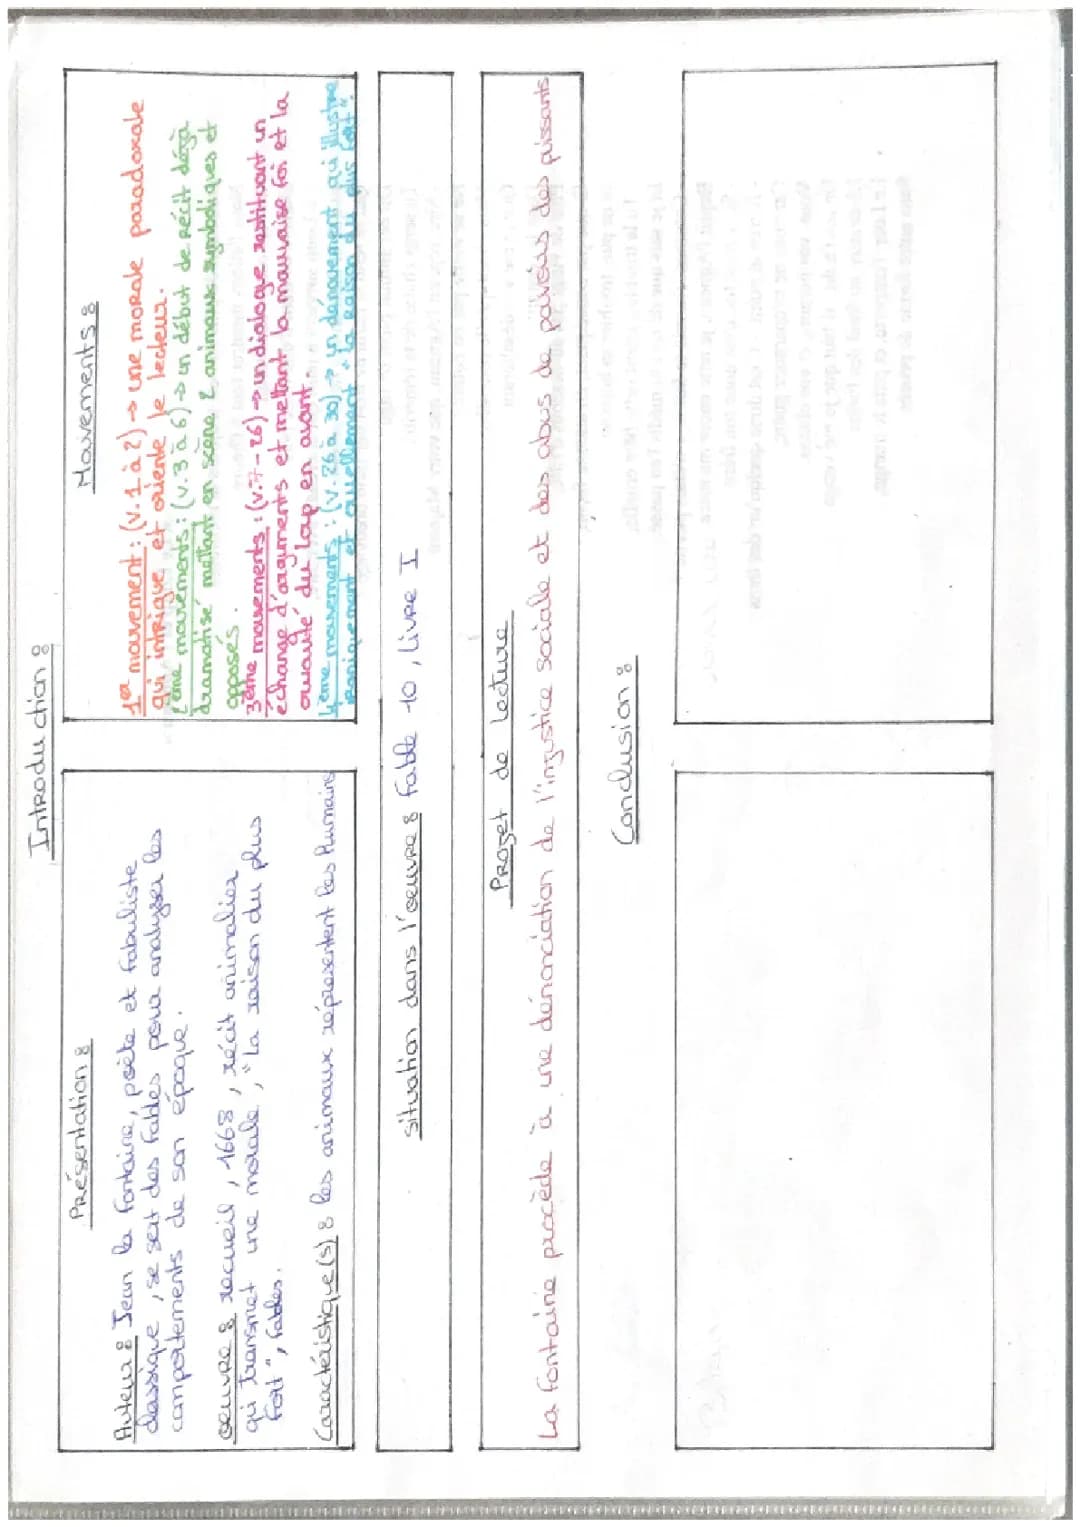 Introduction :
Présentation :
Auteur : Jean la Fontaine, poète et fabuliste
classique, se sert des fables pour analyser les
comportements de son époque.
œuvre : recueil, 1668, récit animalier
qui transmet une morale, "La raison du plus
fort", fables.
Caractéristique(s) : les animaux représentent les humains
Mouvements :
1er mouvement : (v.1 à 2) → une morale paradoxale
qui intrigue et oriente le lecteur.
2ème mouvements : (v.3 à 6) → un début de récit déjà
dramatisé mettant en scène 2 animaux symboliques et
opposés.
3ème mouvements : (v.7-26) → un dialogue restituant un
échange d'arguments et mettant la mauvaise foi et la
cruauté du Loup en avant.
4ème mouvements : (v.26 à 30) → un dénouement qui illustre
ironiquement et cruellement "la raison du plus fort".
situation dans l'œuvre : Fable 10, Livre I
Projet de lecture
La Fontaine procède à une dénonciation de l'injustice sociale et des abus de pouvoirs des puissants
Conclusion :